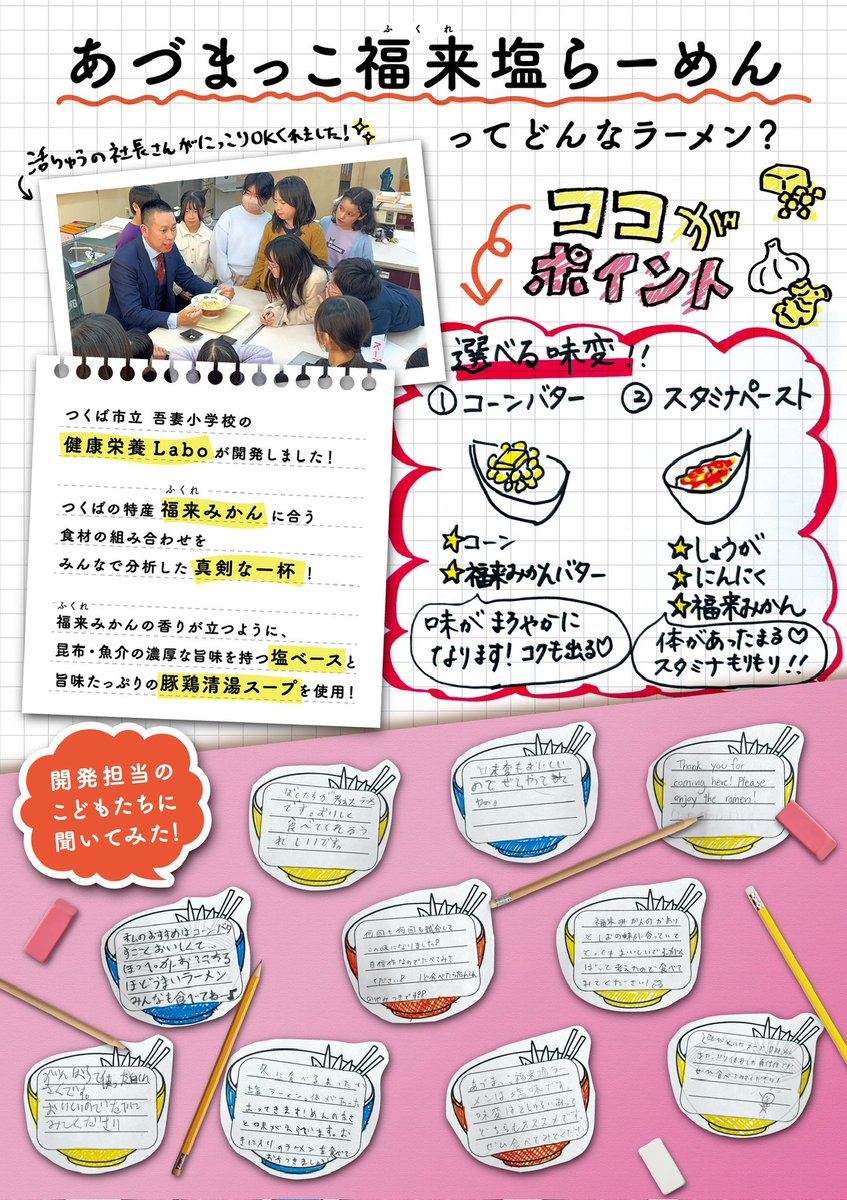 ふくれ
あづまっこ福来塩らーめん
ってどんなラーメン?
活ちゅうの社長さんがにっこりOKくれました!
ココが
ポイント
選べる味変!!
①コーンバター
②スタミナペースト
★コーン
★福来みかんバター
味がまろやかに
なります!コクも出る♡
★しょうが
★にんにく
★福来みかん
体があったまる♡
スタミナもりもり!!
つくば市立 吾妻小学校の
健康栄養Laboが開発しました!
ふくれ
つくばの特産 福来みかん に合う
食材の組み合わせを
みんなで分析した 真剣な一杯!
ふくれ
福来みかんの香りが立つように、
昆布・魚介の濃厚な旨味を持つ塩ベースと
旨味たっぷりの豚鶏清湯スープを使用!
開発担当の
こどもたちに
聞いてみた!
ぼくたちが考えたラーメン
です。おいしく
食べてくれるとう
れしいです。
味変もおいしい
のでぜひやって
Thank you for
coming here! Please
enjoy the ramen!
私のおすすめはコーンバタ
すごくおいしくて、
ほっぺが
ほどうまいラーメン
みんなも食べてねー♪
何回も何回も試食して
この味になりました!
自信作なのでたべてみて
ください!
福来みかんのかおり
としおの味が合っていて
とってもおいしいです
ばって考えたので食べて
みてください!
がんばって
さくです。
おいしいのでたべて
みてください
冬に食べるあったか
塩ラーメン。体があったま
ってきます!めんの太さ
と味がえらべます。お
きに入りのラーメンを食べて
あづまっこ福来塩ラー
メンは塩味です。
味変は2しゅるいあって
どちらもオススメです。
ぜひ食べてみてください